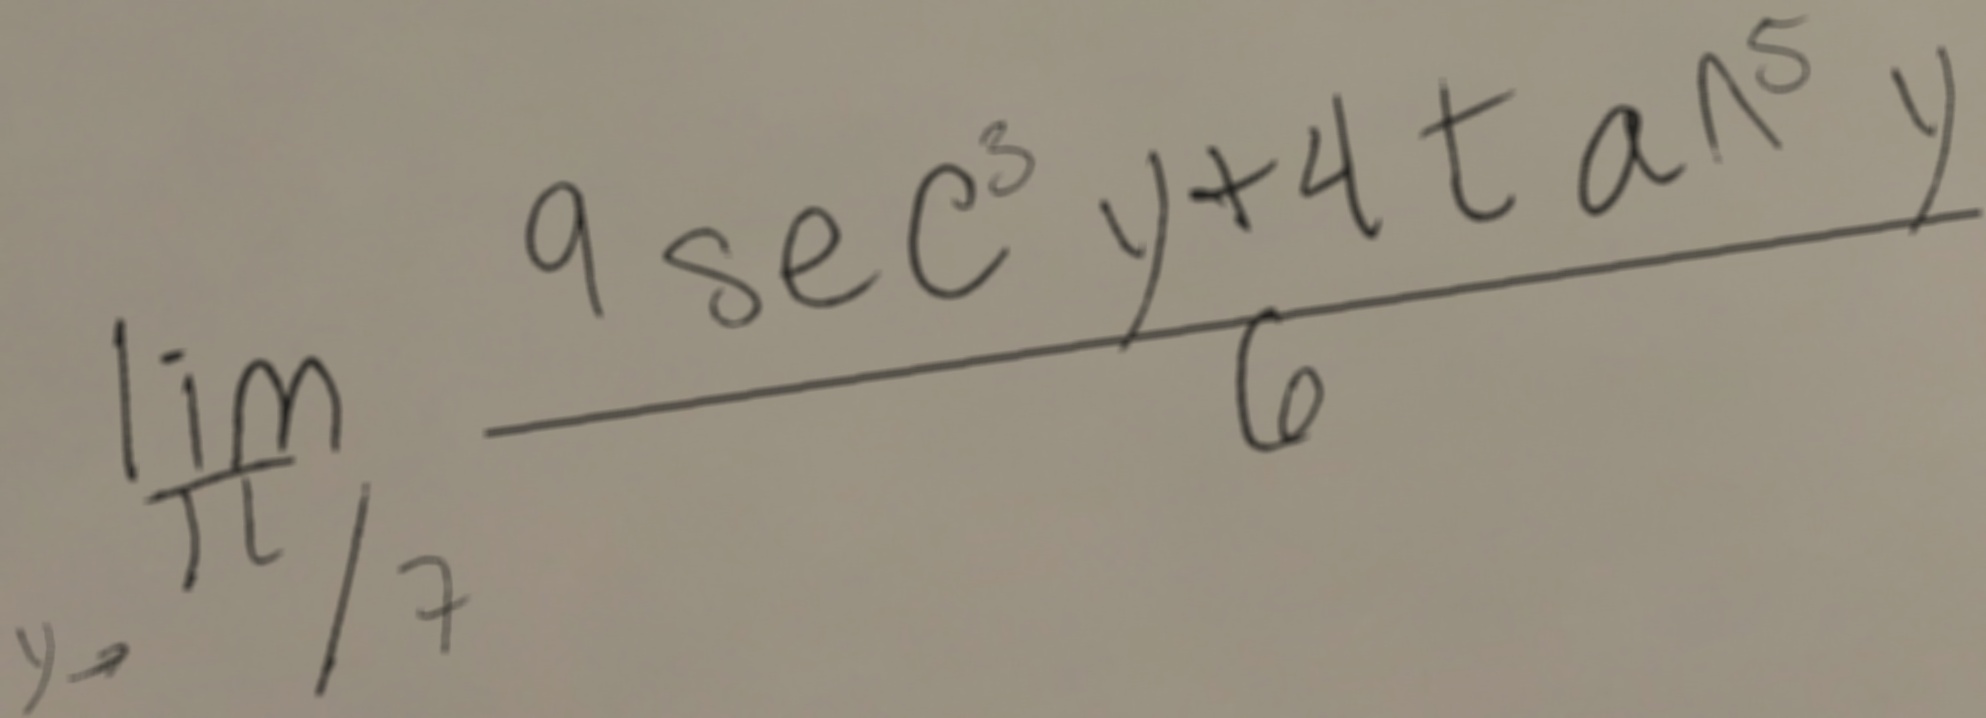 lim y→π/7 (9 sec³ y + 4 tan⁵ y) / 6